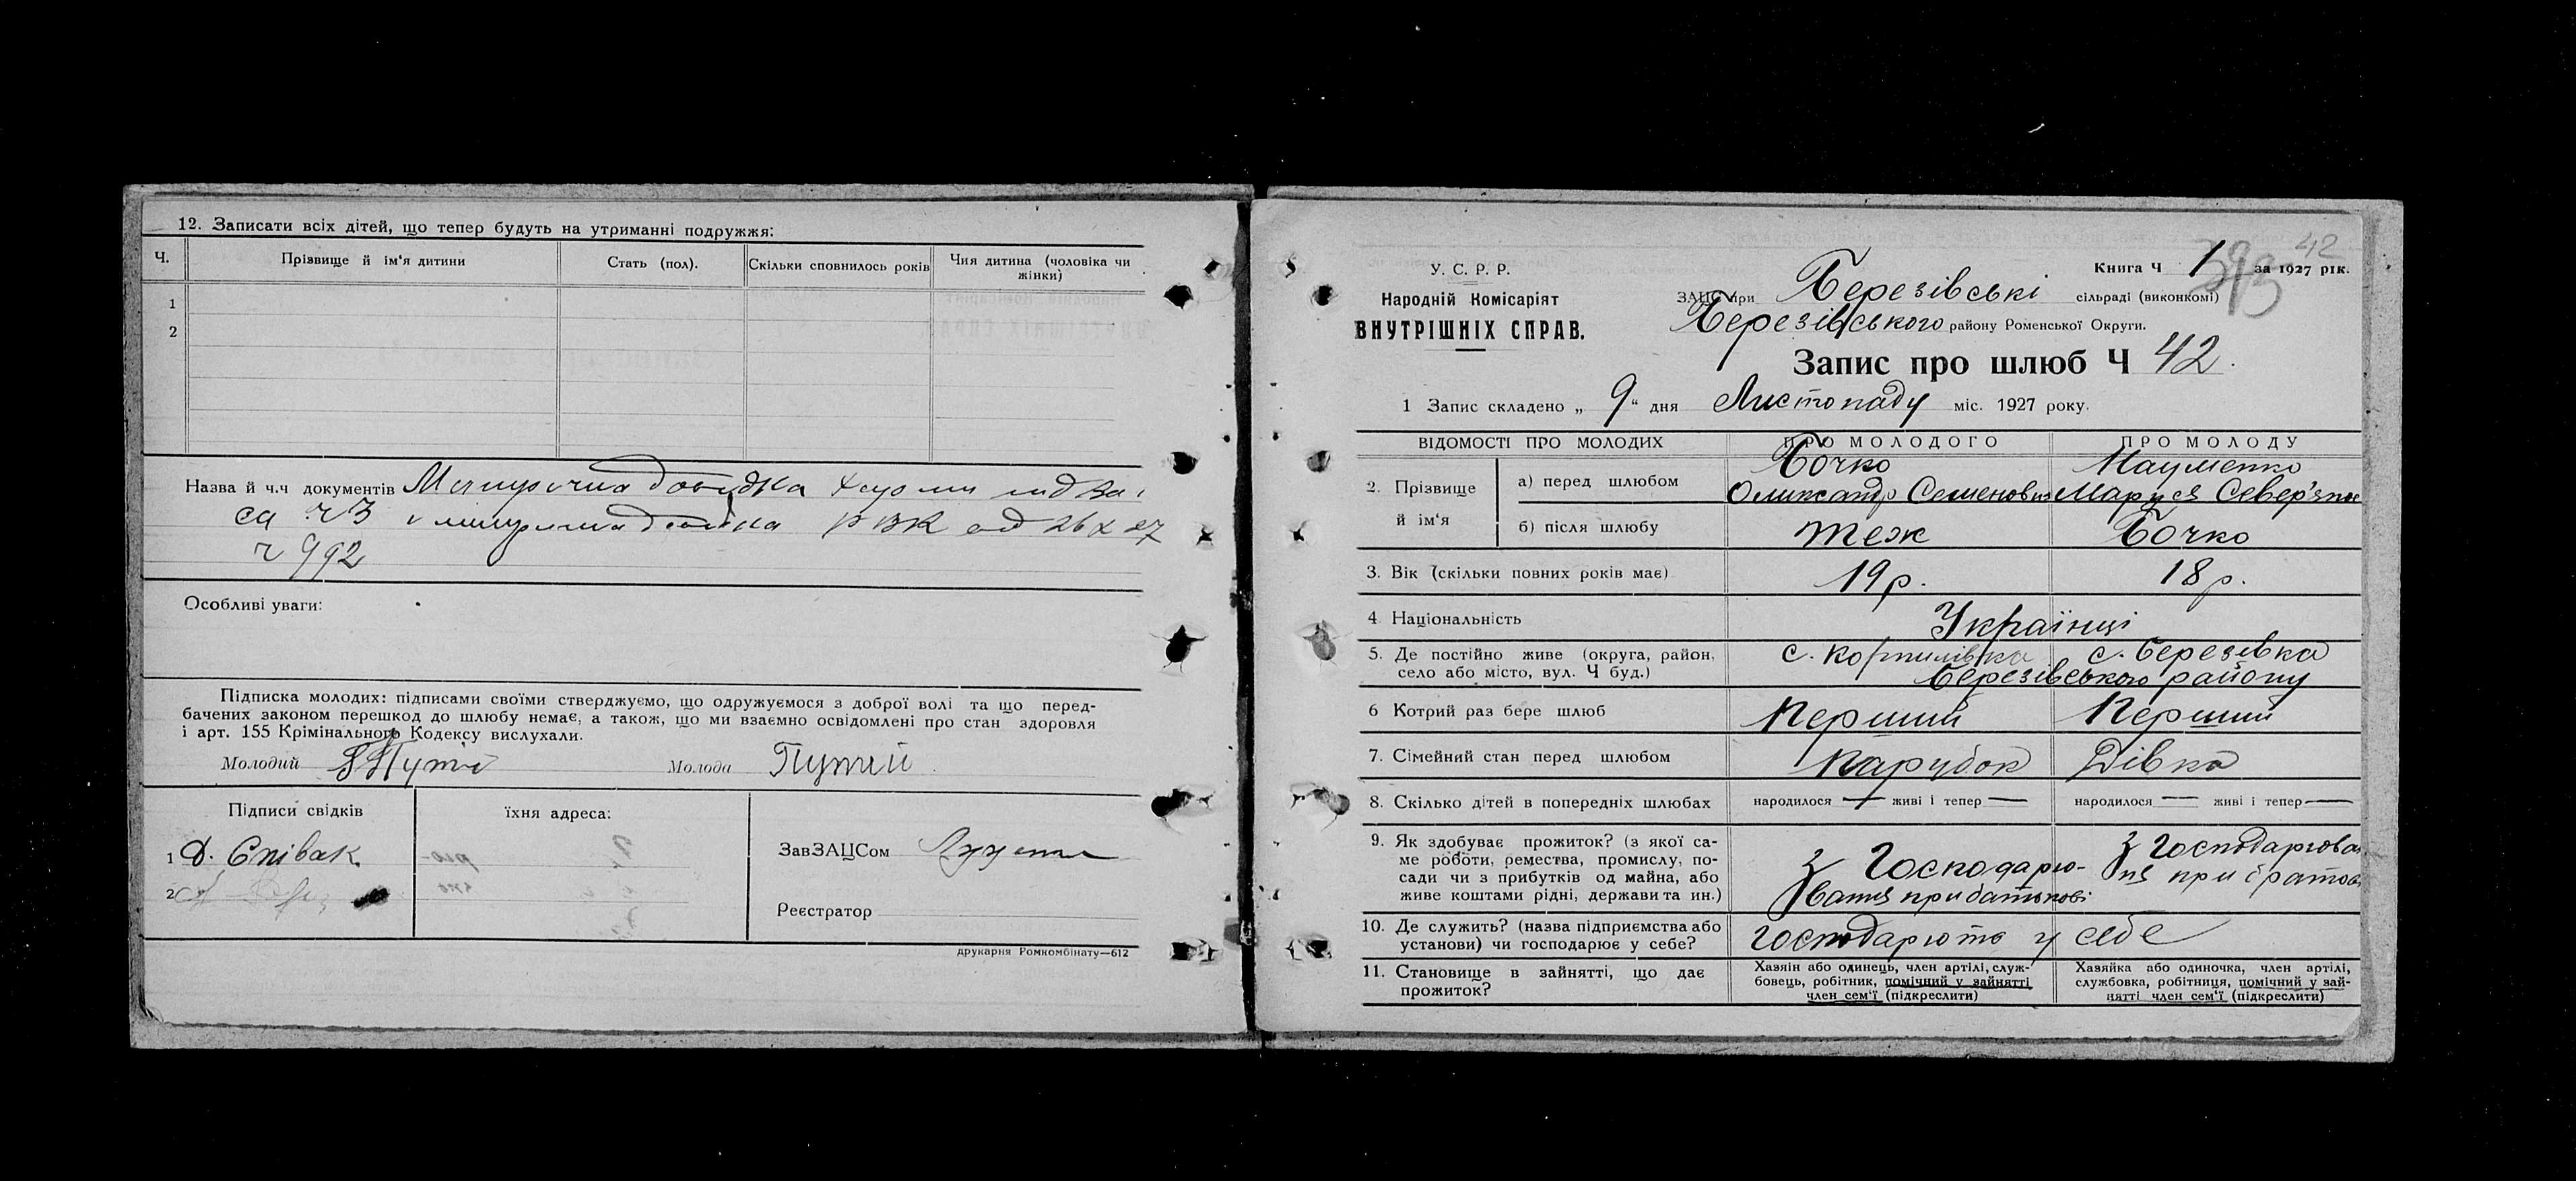 12. Записати всіх дітей, що тепер будуть на утриманні подружжя:
Ч. Прізвище й ім‘я дитини Стать (пол). Скільки сповнилось років Чия дитина (чоловіка чи жінки)
1
2
Назва й ч.ч документів довідка
ч 3 РВК од 26 X 27
ч 992
Особливі уваги:
Підписка молодих: підписами своїми стверджуємо, що одружуємося з доброї волі та що перед-
бачених законом перешкод до шлюбу немає, а також, що ми взаємно освідомлені про стан здоровля
і арт. 155 Крімінального Кодексу вислухали.
Молодий Молода
Підписи свідків їхня адреса:
1 Д. Співак
2
ЗавЗАЦСом
Реєстратор
друкарня Ромкомбінату—612
42
393
У. С. Р. Р.
Народній Комісаріят
ВНУТРІШНІХ СПРАВ.
Книга Ч 1 за 1927 рік.
ЗАЦС при Березівські сільраді (виконкомі)
Березівського району Роменської Округи.
Запис про шлюб Ч 42.
1 Запис складено „ 9 “ дня Листопаду міс. 1927 року.
ВІДОМОСТІ ПРО МОЛОДИХ ПРО МОЛОДОГО ПРО МОЛОДУ
2. Прізвище й ім‘я
а) перед шлюбом Бочко Науменко
Олександр Семенович Маруся
б) після шлюбу теж Бочко
3. Вік (скільки повних років має) 19 р. 18 р.
4 Національність Українці
5. Де постійно живе (округа, район, с. с. Березівка
село або місто, вул. Ч буд.) Березівського району
6 Котрий раз бере шлюб Перший Перший
7. Сімейний стан перед шлюбом Парубок Дівка
8. Скілько дітей в попередніх шлюбах народилося — живі і тепер — народилося — живі і тепер —
9. Як здобуває прожиток? (з якої са-
ме роботи, ремества, промислу, по-
сади чи з прибутків од майна, або
живе коштами рідні, держави та ин.)
З Господарю-
вання при батькові
З Господарюван
ня при братові
10. Де служить? (назва підприємства або
установи) чи господарює у себе?
господарюють у себе
11. Становище в зайнятті, що дає
прожиток?
Хазяїн або одинець, член артілі, служ-
бовець, робітник, помічний у зайнятті
член сем‘ї (підкреслити)
Хазяйка або одиночка, член артілі,
службовка, робітниця, помічний у зай-
нятті член сем‘ї (підкреслити)